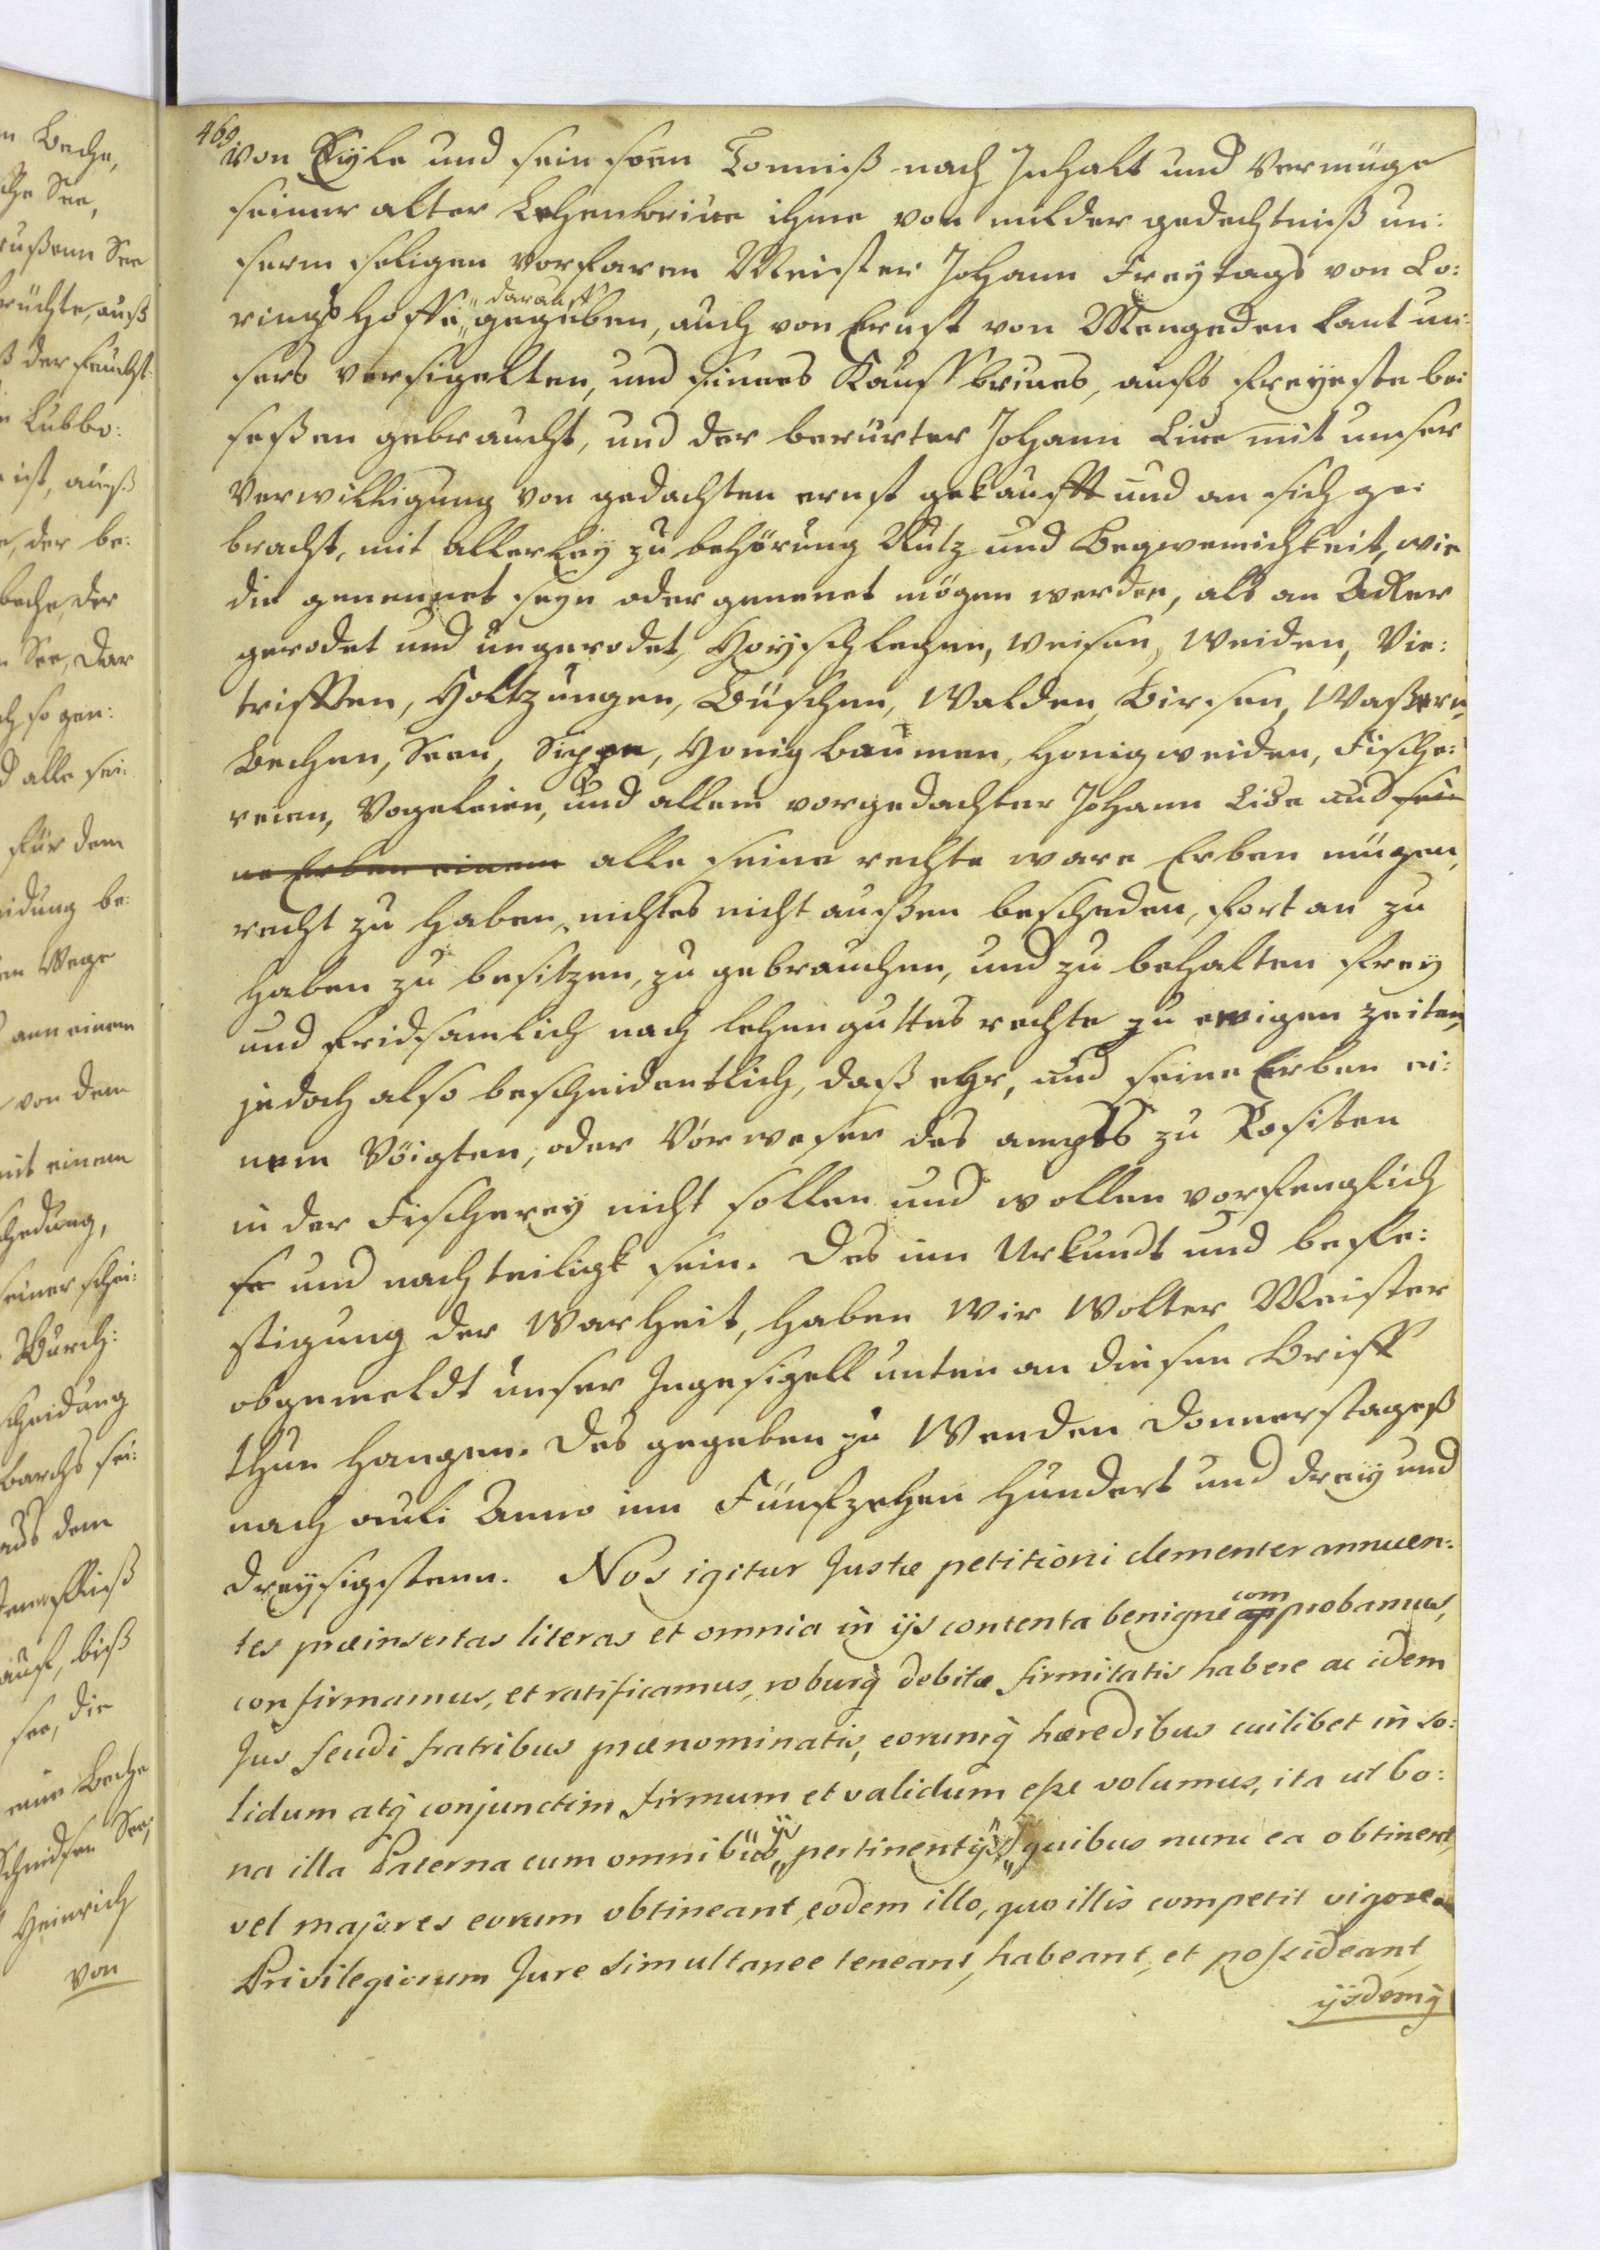 n Beche,
sche See,
rußenn See
rüchte, auß
ß der feücht:
e Lubbo:
ist, auß
e, der be:
beche, der
n See, dar
ch so gen:
d alle sei:
für dem
eidung be:
em Wege
ann einem
von dem
mit einem
schedung,
seiner schei:
Burch:
scheidung
barchs sei:
aus dem
auf, biß
see, die
eine Beche
Schneidsen See,
Heinrich
von
469.
von Eyle und sein soen Tonniß nach Inhalt und Vermüge
seiner alter Lehenbriue ihme von milder gedechtniß un:
serm seligen Vorfaren Meister Johann Freytags von Lo:
rings Hoffe „darauff„ gegeben, auch von Ernst von Mengeden laut un:
sers versigelten, und seines Kauffbriues, aufs freyeste be:
seßen gebraucht, und der berürter Johann Liue mit unser
Verwilligung von gedachten ernst gekaufft und an sich ge:
bracht, mit allerley zu behörung Nutz und Beqwemichkeit, wie
die genennet seyn oder genenet mögen werden, als an Acker
gerodet und ungerodet, Hoyschlegen, weisen, Weiden, Vie:
trifften, Holtzungen, Büschen, Walden, Birsen, Waßern,
Bechen, Seen, Sippe, Honigbaumen, Honigweiden, Fische:
reien, Vogeleien, und allem vorgedachter Johann Live und sei
ne Erben einem alle seine rechte ware Erben mügen,
recht zu haben, nichtes nicht außen bescheden, fort an zu
haben zu besitzen, zu gebrauchen, und zu behalten frey
und fridsamlich nach lehenguttes rechte zu ewigen zeiten,
jedoch also bescheidentlich, daß ehr, und seine Erben ei:
nem Vöigten, oder Vorweser des ampts zu Rositen
in der Fischerey nicht sollen und wollen vorfenglich
se und nachteiligk sein. Des inn Urkundt und befe:
stigung der Warheit, haben Wir Wolter Meister
obgemeldt unser Ingesigell unten an diesen Brieff
thun hangen. Des gegeben zu Wenden Donnerstageß
nach auli Anno im Fünfzehen hundert und drey und
dreysigstenn. Nos igitur Justæ petitioni clementer annuen:
tes præinsertas literas et omnia in ijs contenta benigne com approbamus,
confirmamus, et ratificamus, roburq̃ debitæ firmitatis habere ac idem
Jus feudi fratribus prænominatis, eorumq̃ hæredibus cuilibet in so:
lidum atq̃ conjunctim firmum et validum eße volumus, ita ut bo:
na illa Paterna cum omnibus „ijs„ pertinentijs, quibus nunc ea obtinent,
vel majores eorum obtineant, eodem illo, quo illis competit vigore
Privilegiorum Jure simultanee teneant, habeant, et poßideant,
ijsdemq̃